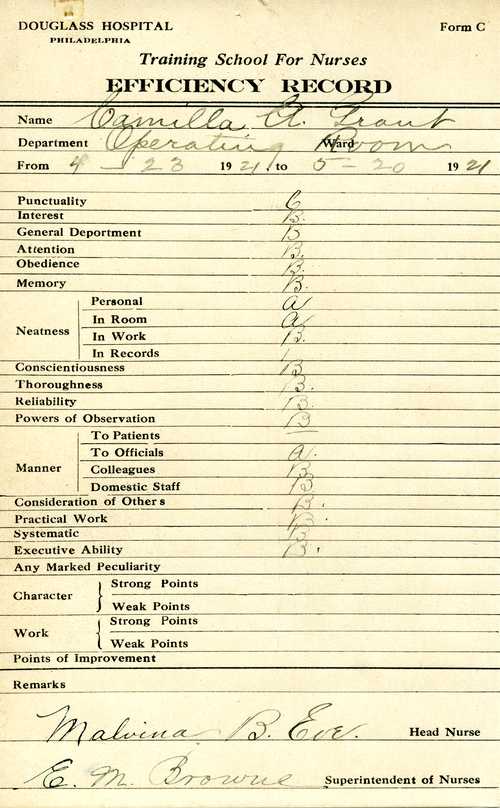 DOUGLASS HOSPITAL Form C
PHILADELPHIA
Training School For Nurses
EFFICIENCY RECORD
Name Camilla A. Grant
Department Operating Ward Room
From 4 - 23 1921, to 5-20 1921
Punctuality C
Interest B.
General Department B
Attention B.
Obedience B.
Memory B.
Neatness
Personal a
In Room a
In Work B.
In Records
Conscientiousness B
Thoroughness B.
Reliability B.
Powers of Observation B
Manner
To Patients —
To Officials a.
Colleagues B
Domestic Staff B
Consideration of Others B.
Practical Work B.
Systematic B.
Executive Ability B.
Any Marked Peculiarity
Character
Strong Points
Weak Points
Work
Strong Points
Weak Points
Points of Improvement
Remarks
Malvina B. Eve. Head Nurse
E. M. Browne Superintendent of Nurses